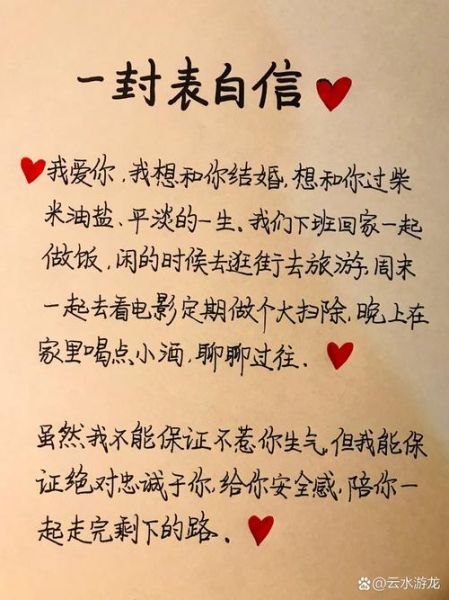 一封表白信
我爱你,我想和你结婚,想和你过柴
米油盐、平淡的一生。我们下班回家一起
做饭,闲的时候去逛街去旅游,周末
一起去看电影定期做个大扫除,晚上在
家里喝点小酒,聊聊过往。
虽然我不能保证不惹你生气,但我能保
证绝对忠诚于你,给你安全感,陪你一
起走完剩下的路。
@云水游龙